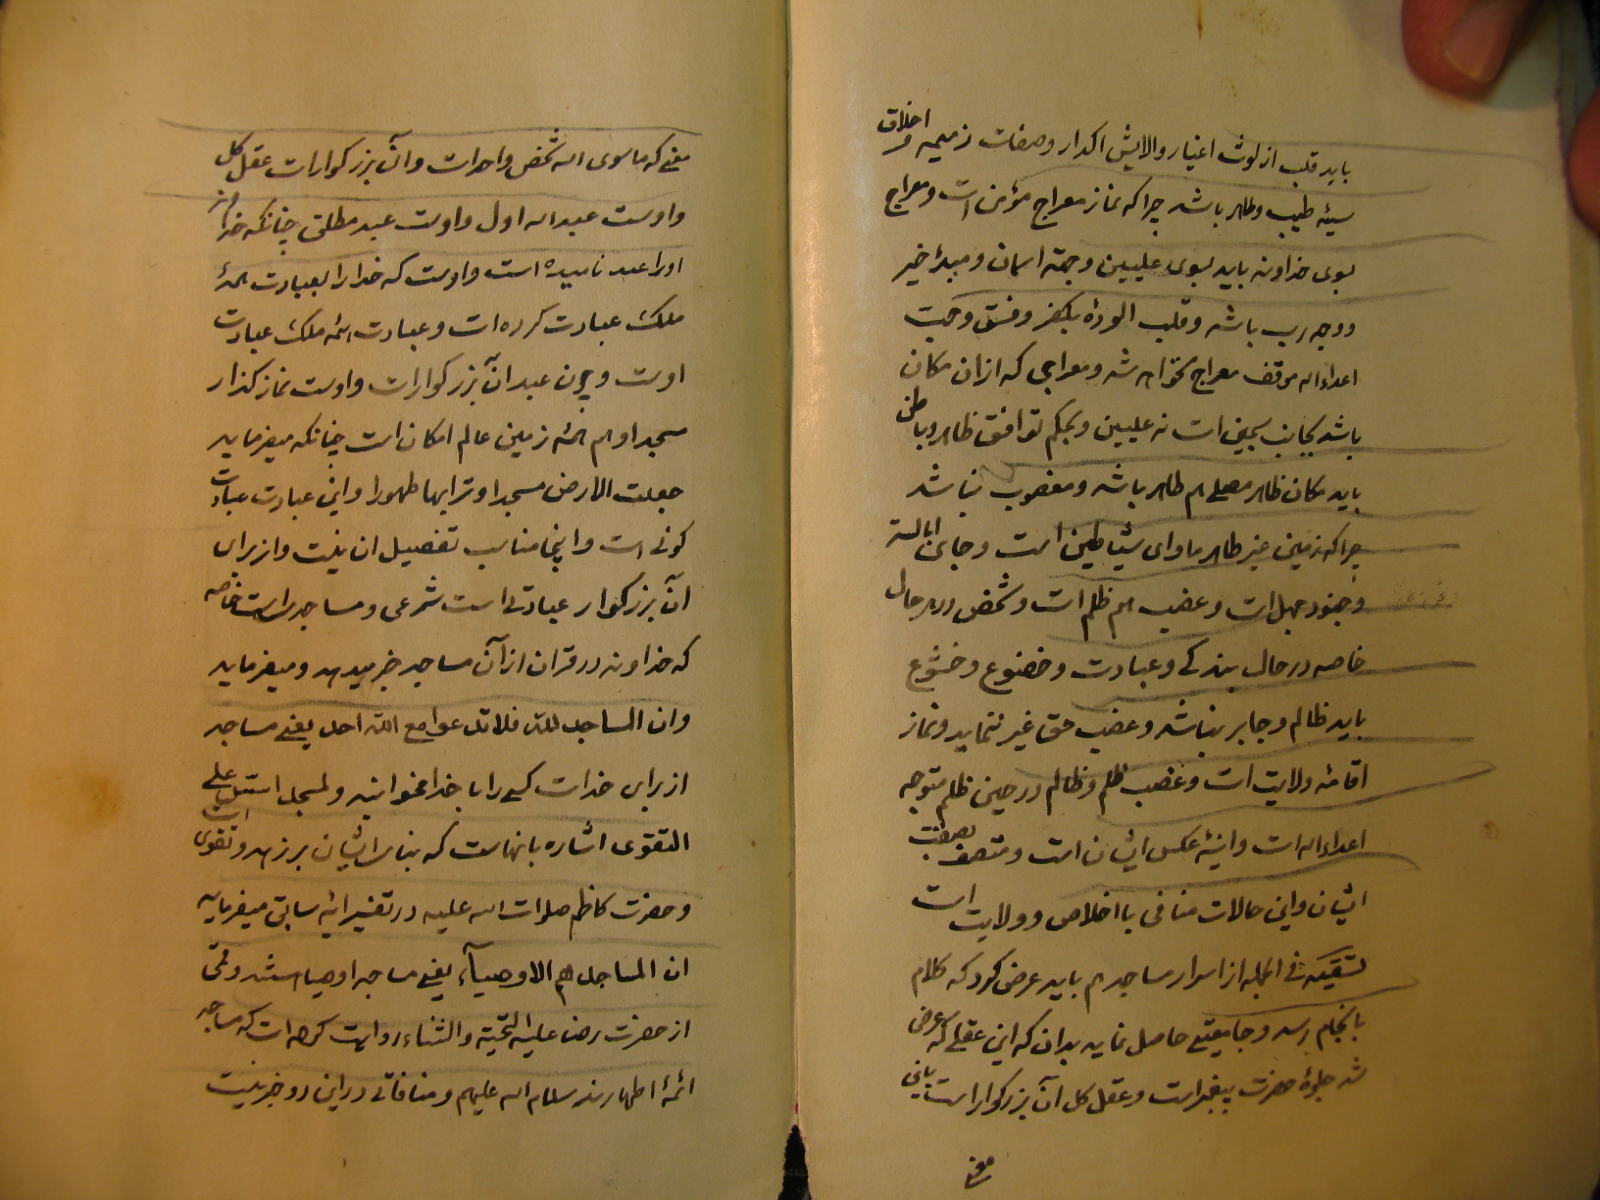 باید قلب از لوث اغیار والایش اکدار وصفات ذمیمه و اخلاق
سیئه طیب وطاهر باشد چرا که نماز معراج مؤمن است ومعراج
بسوی خداوند باید بسوی علیین وجهة اسمان ومبدء خیر
ووجه رب باشد وقلب الوده بکفر وفسق وحب
اعداء اله موقف معراج نخواهد شد ومعراجی که ازان مکان
باشد بجانب سجین است نه علیین وبحکم توافق ظاهر وباطن
باید مکان ظاهر مصلی هم طاهر باشد ومغصوب نباشد
چرا که زمین غیر طاهر ماوای شیاطین است وجای ابالسه
وجنود جهل است وغضب هم ظلم است وشخص در هر حال
خاصه در حال بندکی وعبادت وخضوع وخشوع
باید ظالم وجابر نباشد وغضب حق غیر ننماید ونماز
اقامهٔ ولایت است وغضب ظلم وظالم در حین ظلم متوجه
اعداء اله است واینهٔ عکس ایشان است ومتصف بصفت
ایشان واین حالات منافی با اخلاص وولایت است
تتمیم فی الجمله از اسرار مساجد هم باید عرض کرد که کلام
بانجام رسد وجامعیتی حاصل نماید بدان که این عقلی که عرض
شد جلوهٔ حضرت پیغمبر است وعقل کل آن بزرکوار است بانی
معنی
معنی که ماسوی اله شخص واحد است وآن بزرکوار است عقل کل
واوست عبد اله اول واوست عبد مطلق چنانکه خداوند
اورا عبد نامیده است واوست که خدا را بعبادت همهٔ
ملک عبادت کرده است وعبادت همه ملک عبادت
اوست وچون عبد آن بزرکوار است واوست نماز کذار
مسجد او هم همهٔ زمین عالم امکان است چنانکه میفرماید
جعلت لی الارض مسجدا وترابها طهورا واین عبادت عبادت
کونی است واینجا مناسب تفصیل ان نیست واز برای
آن بزرکوار عبادتی است شرعی ومساجدی است خاصه
که خداوند در قران از آن مساجد خبر میدهد ومیفرماید
وان المساجد لله فلا تدعوا مع الله احد یعنی مساجد
از برای خدا است کسی را با خدا نخوانید ولمسجد اسس علی
التقوی اشاره بانهاست که بنای ایشان بر زهد وتقوی است
وحضرت کاظم صلوات اله علیه در تفسیر ایهٔ سابق میفرماید
ان المساجد هم الاوصیآء یعنی مساجد اوصیا هستند وقمی
از حضرت رضا علیه التحیة والثناء روایت کرده است که مساجد
ائمهٔ اطهارند سلام اله علیهم ومنافاتی در این دو خبر نیست